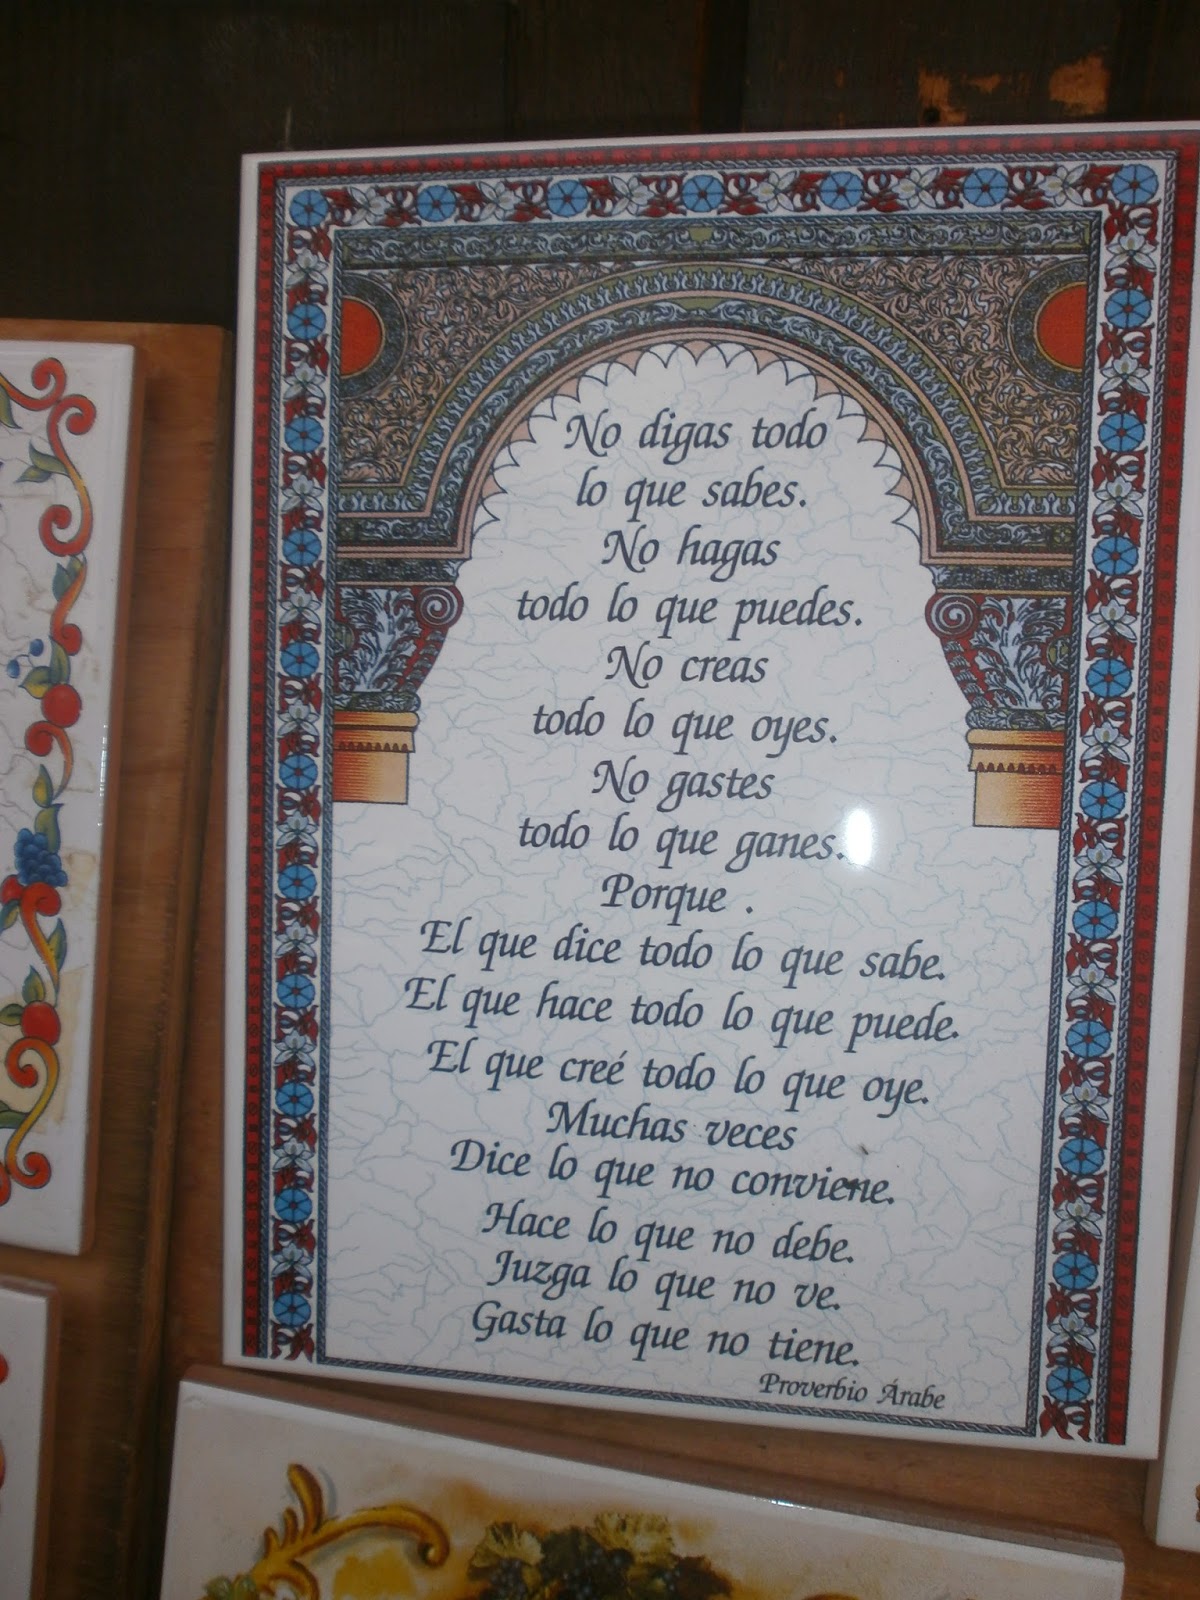 No digas todo
lo que sabes.
No hagas
todo lo que puedes.
No creas
todo lo que oyes.
No gastes
todo lo que ganes.
Porque .
El que dice todo lo que sabe.
El que hace todo lo que puede.
El que creé todo lo que oye.
Muchas veces
Dice lo que no conviene.
Hace lo que no debe.
Juzga lo que no ve.
Gasta lo que no tiene.
Proverbio Árabe